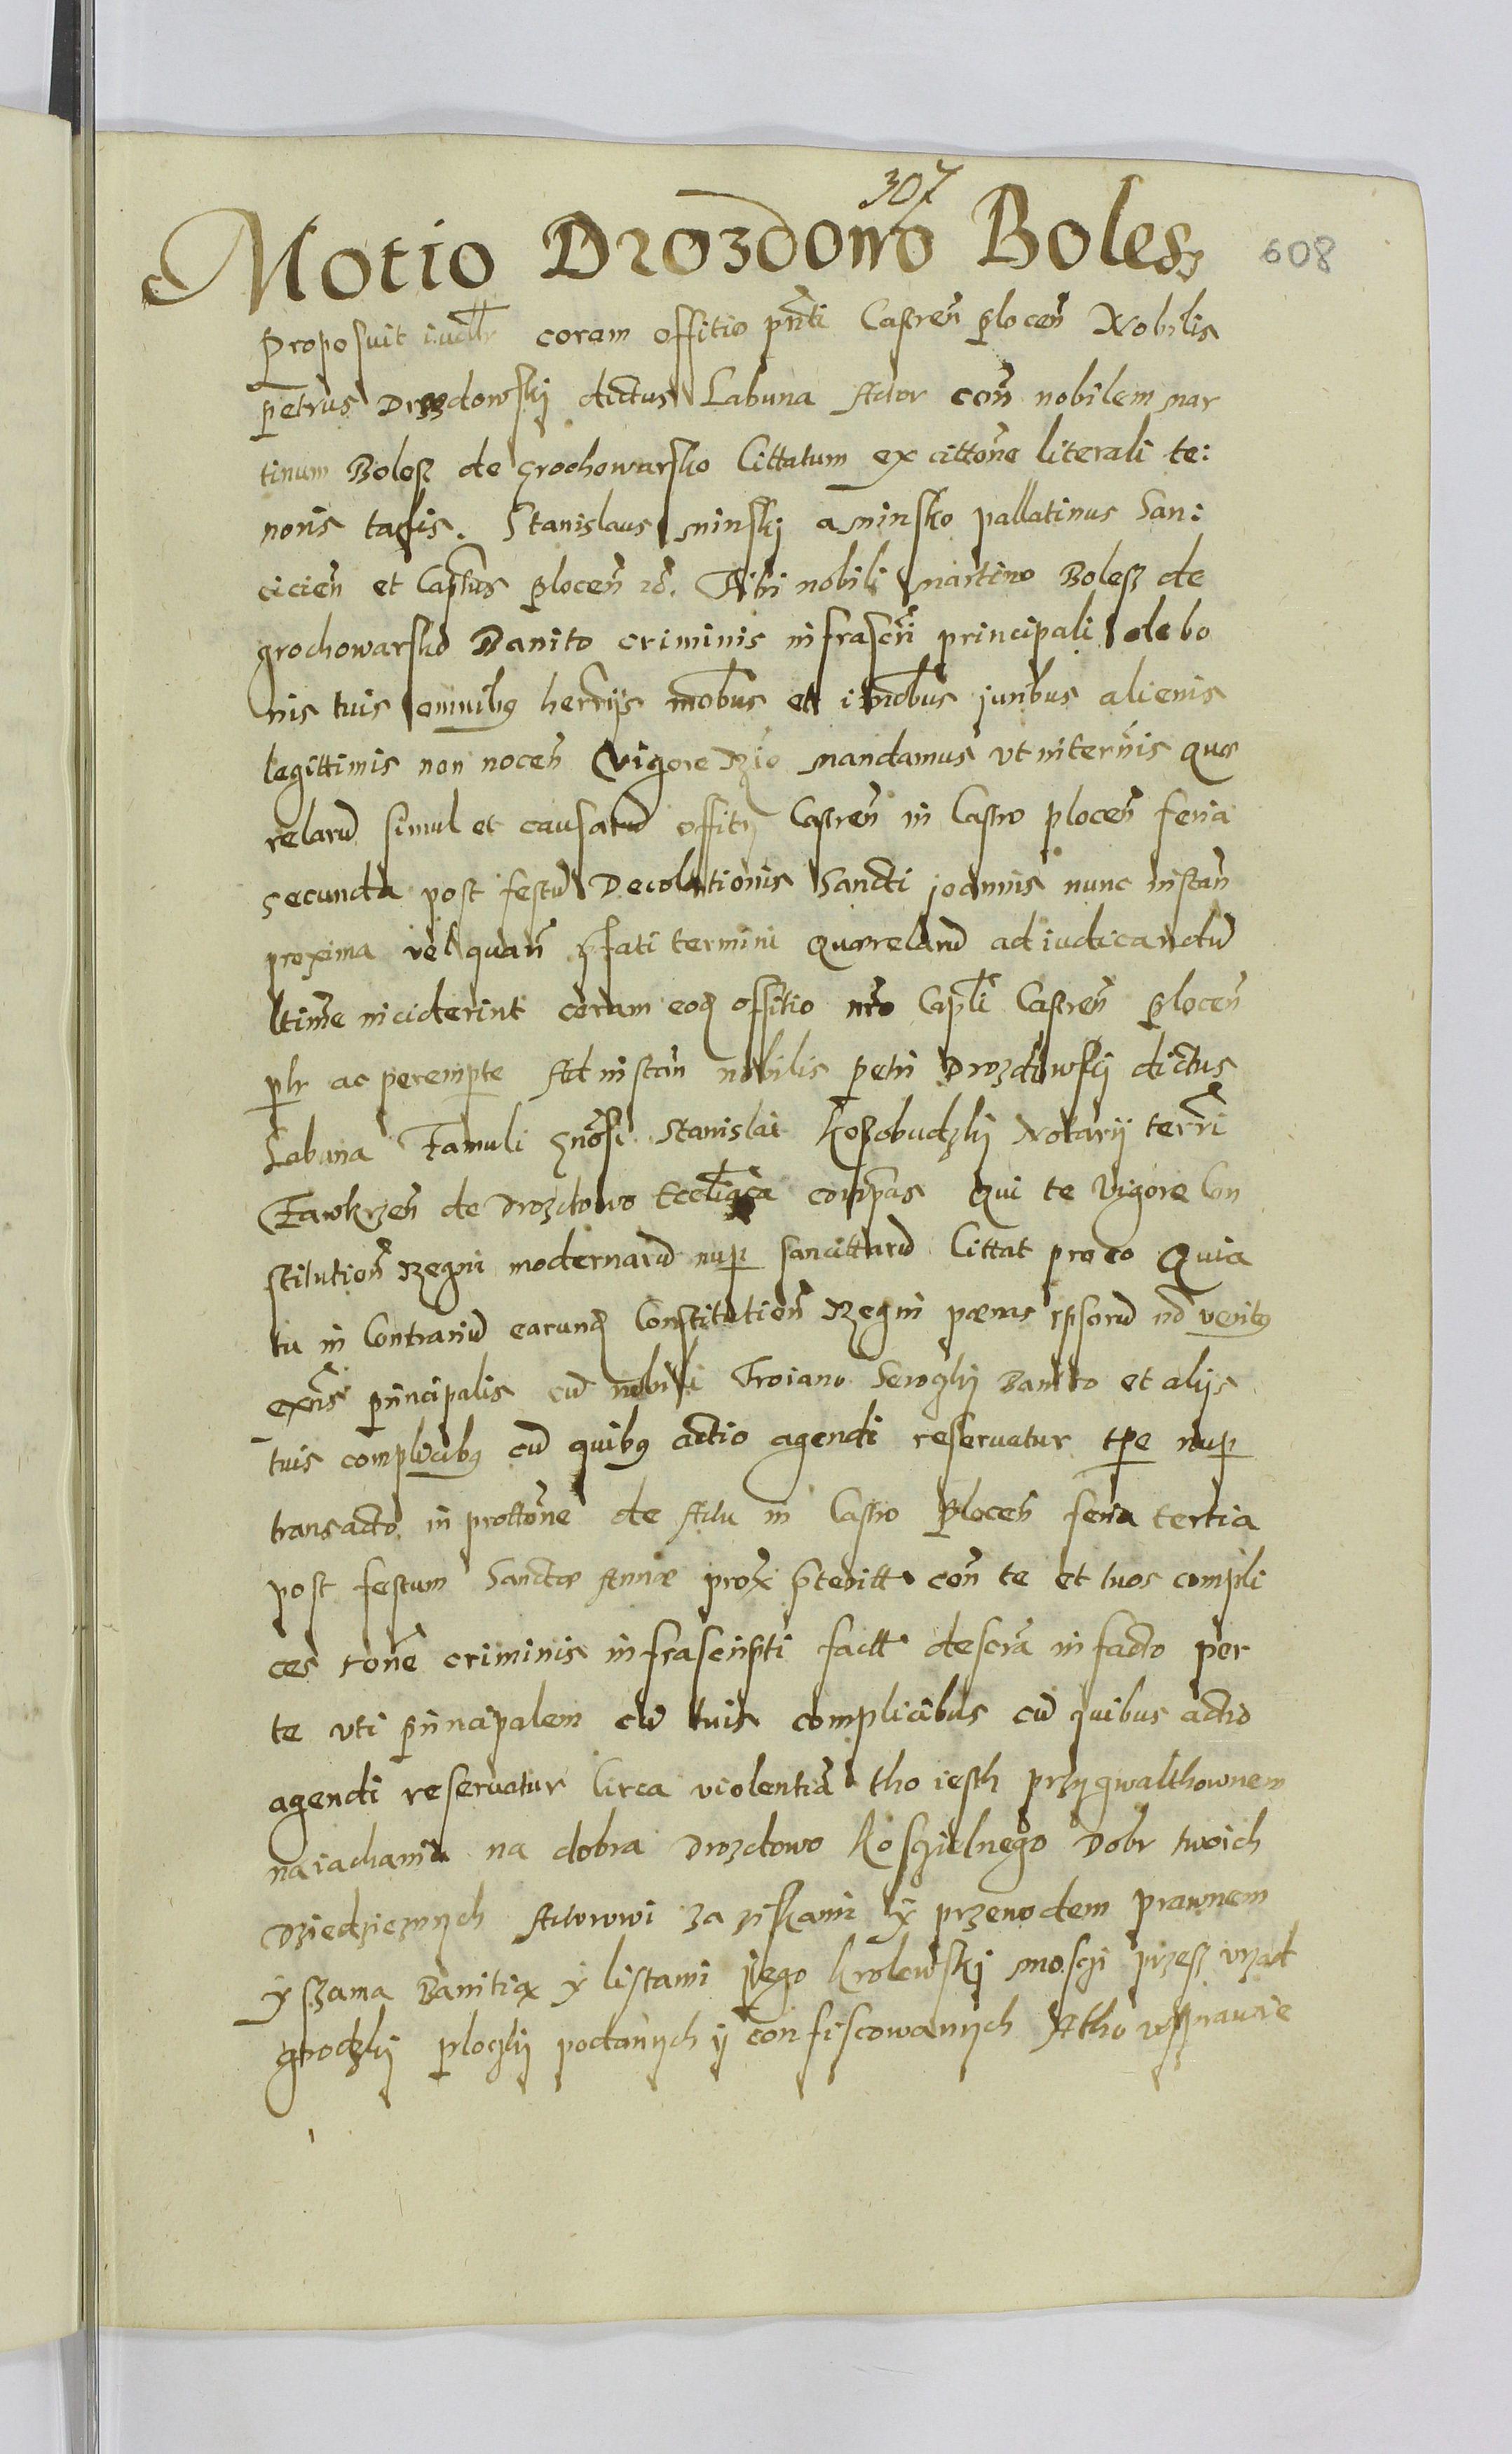 307
Motio Drozdowo Bolesz 608
Proposuit iudllr coram offitio pnti Castren plocen Nobilis
petrus Drozdowskj dictus Labuna Actor con nobilem mar
tinum Bolesz de grochowarsko Cittatum ex cittone literali te:
noris talis. Stanislaus minskj a minsko pallatinus Lan:
cicien et Captus plocen Tibi nobili martino Bolesz de
grochowarsko Banito criminis infrascri principali de bo
nis tuis omnibus herrijs mobus et imobus juribus alienis
legittimis non nocen Vigore Rgio mandamus vt in terinis quæ
relaru simul et causaru offity Castren in Castro plocen feria
secunda post festu Decolationis Sancti joannis nunc instan
proxima vel quan pfati termini quærelaru ad iudicandu
ltime inciderint coram eoq offitio nro Capli Castren plocen
plr ac perempte Ad instan nobilis petri Drozdowskj dictus
Labuna Famuli gnosi Stanislai Kossobudzkj Notarij terri
Zawkrzen de Drozdowo Eccliaca compas Qui te Vigore Con
stitution Regni modernaru nup sancittaru Cittat pro eo Quia
tu in Contrariu earunq Constitution Regni pænas ipsoru no veritus
exns principalis cu nobili Troiano Banito et alijs
tuis complicibus cu quibus actio agendi reservatur tpe nup
transacto in prottone de Actu in Castro Plocen feria tertia
post festum Sanctæ Annæ prox pteritt con te et tuos compli
ces rone criminis infrascripti factt descra in facto per
te vti principalem cu tuis complicibus cu quibus actio
agendi reservatur Circa violentia tho iesth przy gwalthownem
naiachaniu na dobra Drozdowo Kosczielnego Dobr twoich
Dziedzicznych Actorowi za ziskami y przewodem prawnem
y szama Banitia y listami jego Krolewskj mosczi przesz vrzad
grodzkj ploczkj podanych y confiscowanych Atho